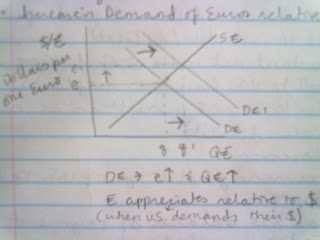 • Increase in Demand of Euros relative
$/€
S€
Dollars per
one Euro
e'
e
D€1
D€
q q' Q€
D€ → e↑ & Q€↑
€ appreciates relative to $
(when U.S. demands their $)